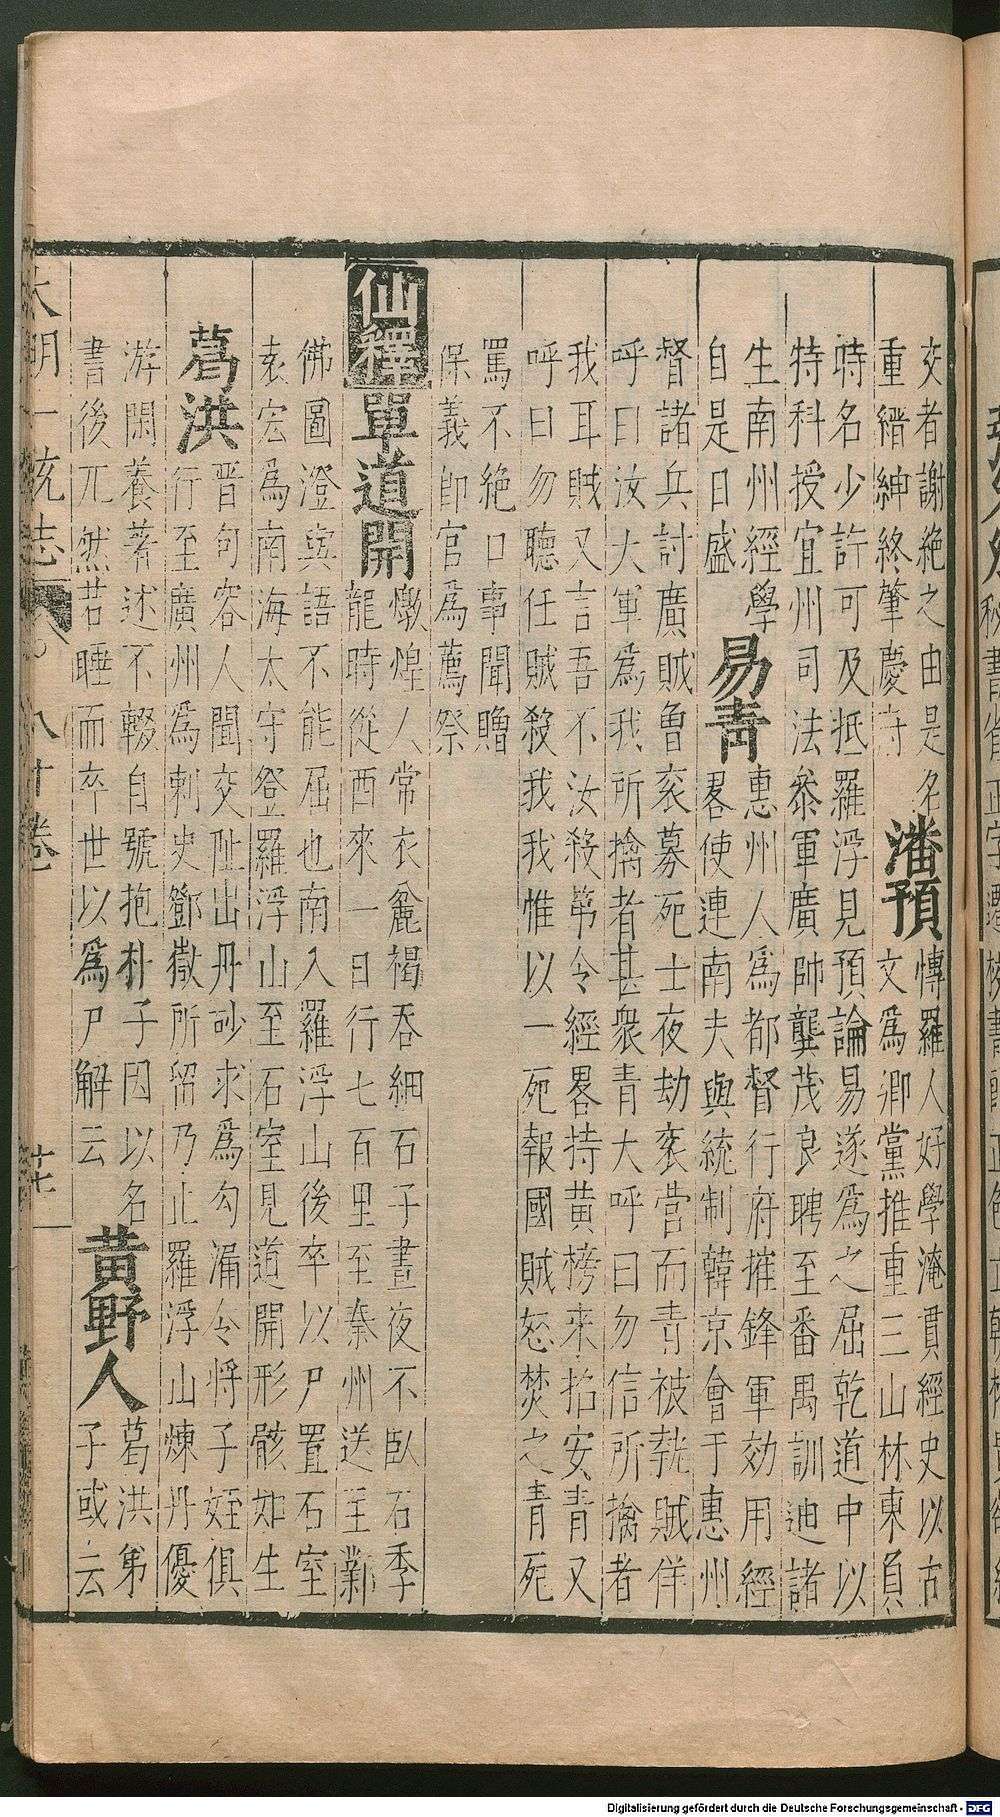 交者謝絶之由是名
重縉紳終肇慶守
潘預
慱羅人好學淹貫經史以古
文爲鄉黨推重三山林東負
時名少許可及抵羅浮見預論易遂爲之屈乾道中以
特科授宜州司法叅軍廣帥龔茂良聘至番禺訓迪諸
生南州經學
自是日盛
易青
惠州人爲都督行府摧鋒軍効用經
畧使連南夫與統制韓京會于惠州
督諸兵討廣賊曾衮募死士夜劫衮營而青被執賊佯
呼曰汝大軍爲我所擒者甚衆青大呼曰勿信所擒者
我耳賊又言吾不汝殺苐令經畧持黄榜來招安青又
呼曰勿聽任賊殺我我惟以一死報國賊怒焚之青死
罵不絶口事聞贈
保義郎官爲薦祭
仙釋
單道開
燉煌人常衣麄褐吞細石子晝夜不臥石季
龍時從西來一日行七百里至秦州送至鄴
佛圖澄與語不能屈也南入羅浮山後卒以尸置石室
袁宏爲南海太守登羅浮山至石室見道開形骸如生
葛洪
晋句容人聞交阯出丹砂求爲勾漏令將子姪俱
行至廣州爲刺史鄧嶽所留乃止羅浮山煉丹優
游閑養著述不輟自號抱朴子因以名
書後兀然若睡而卒世以爲尸解云
黄野人
葛洪弟
子或云
大明一統志
八十卷
廿七
Digitalisierung gefördert durch die Deutsche Forschungsgemeinschaft - DFG